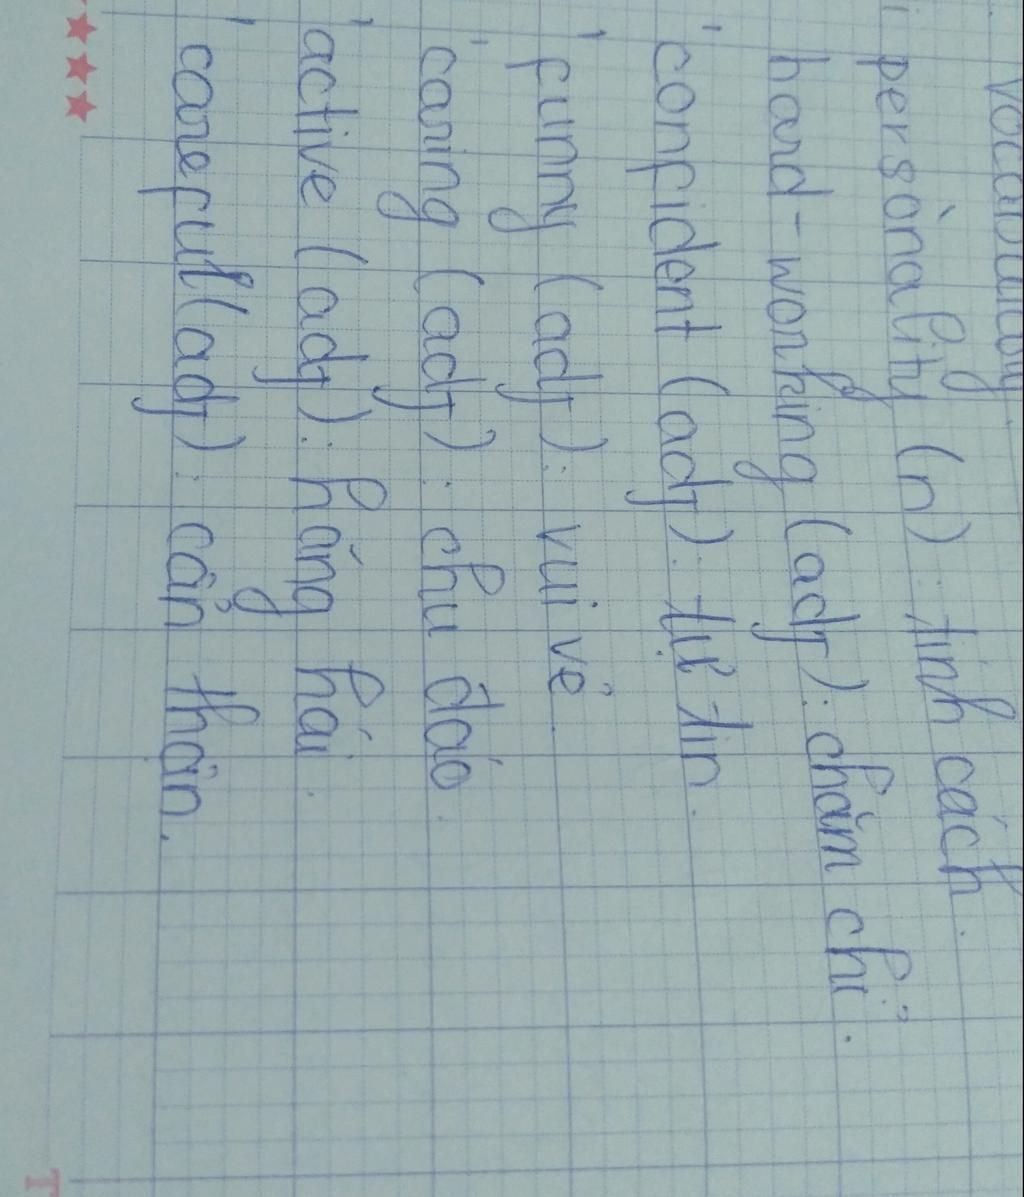 Vocabulary
personality (n): tính cách.
hard-working (adj): chăm chỉ.
'confident (adj): tự tin.
'funny (adj): vui vẻ.
'caring (adj): chu đáo.
'active (adj): hăng hái.
'careful (adj): cẩn thận.
T